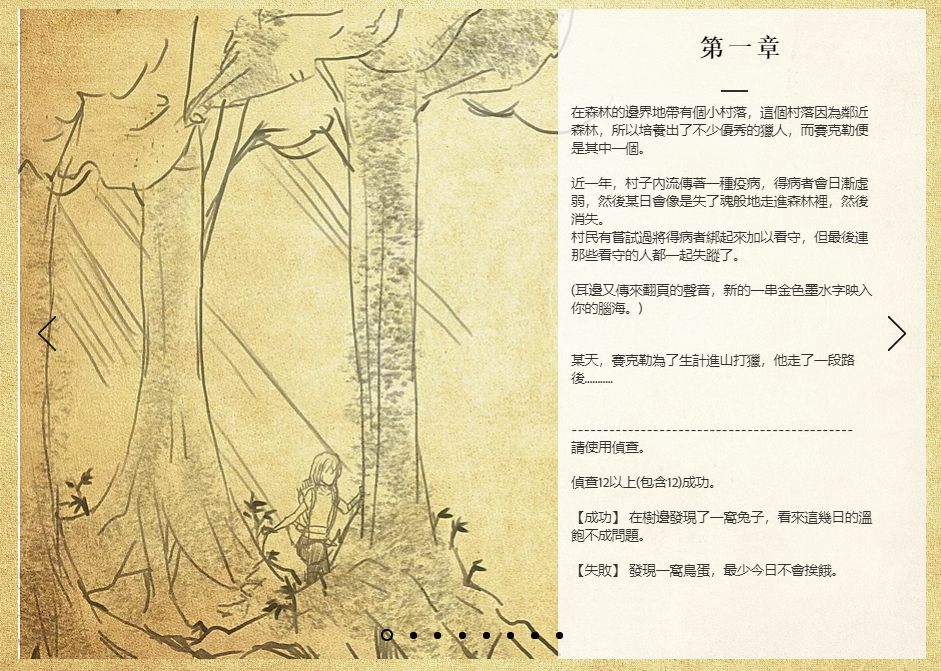 第一章
在森林的邊界地帶有個小村落，這個村落因為鄰近
森林，所以培養出了不少優秀的獵人，而賽克勒便
是其中一個。
近一年，村子內流傳著一種疫病，得病者會日漸虛
弱，然後某日會像是失了魂般地走進森林裡，然後
消失。
村民有嘗試過將得病者綁起來加以看守，但最後連
那些看守的人都一起失蹤了。
(耳邊又傳來翻頁的聲音，新的一串金色墨水字映入
你的腦海。)
某天，賽克勒為了生計進山打獵，他走了一段路
後...........
---------------------------------------------
請使用偵查。
偵查12以上(包含12)成功。
【成功】 在樹邊發現了一窩兔子，看來這幾日的溫
飽不成問題。
【失敗】 發現一窩鳥蛋，最少今日不會挨餓。